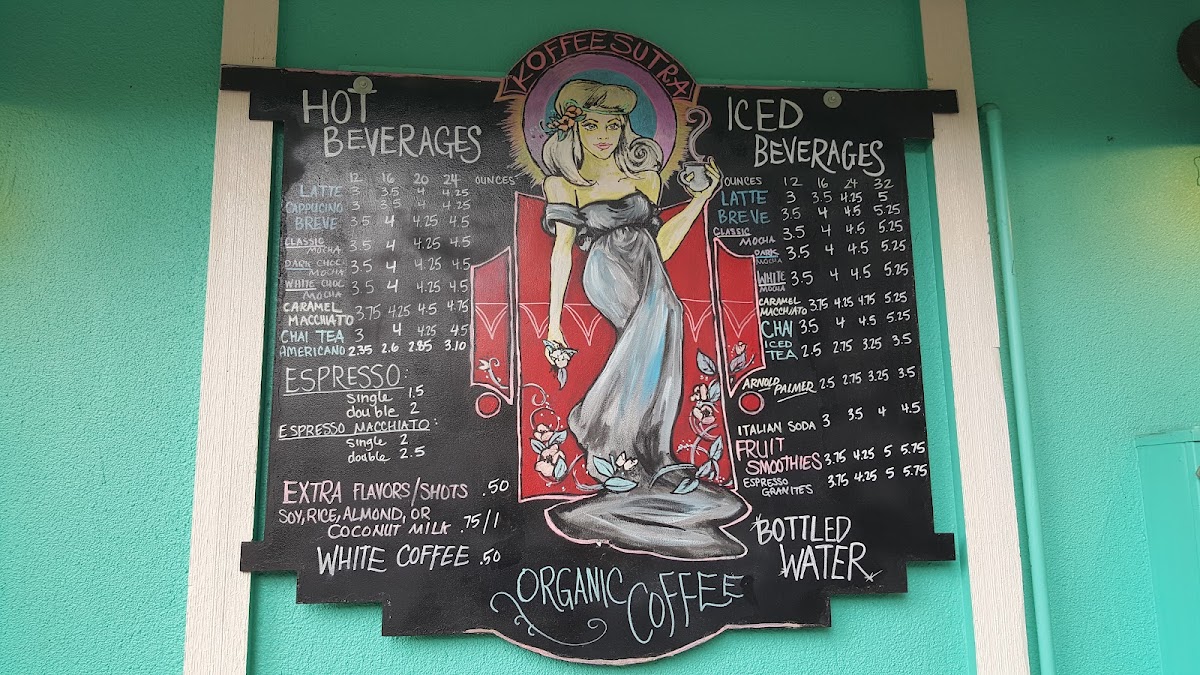 KOFFEE SUTRA
HOT
BEVERAGES
12 16 20 24 OUNCES
LATTE 3 3.5 4 4.25
CAPPUCINO 3 3.5 4 4.25
BREVE 3.5 4 4.25 4.5
CLASSIC
MOCHA 3.5 4 4.25 4.5
DARK CHOC
MOCHA 3.5 4 4.25 4.5
WHITE CHOC
MOCHA 3.5 4 4.25 4.5
CARAMEL
MACCHIATO 3.75 4.25 4.5 4.75
CHAI TEA 3 4 4.25 4.5
AMERICANO 2.35 2.6 2.85 3.10
ESPRESSO:
single 1.5
double 2
ESPRESSO MACCHIATO:
single 2
double 2.5
EXTRA FLAVORS/SHOTS .50
SOY, RICE, ALMOND, OR
COCONUT MILK .75/1
WHITE COFFEE .50
ICED
BEVERAGES
OUNCES 12 16 24 32
LATTE 3 3.5 4.25 5
BREVE 3.5 4 4.5 5.25
CLASSIC
MOCHA 3.5 4 4.5 5.25
DARK
MOCHA 3.5 4 4.5 5.25
WHITE
MOCHA 3.5 4 4.5 5.25
CARAMEL
MACCHIATO 3.75 4.25 4.75 5.25
CHAI 3.5 4 4.5 5.25
ICED
TEA 2.5 2.75 3.25 3.5
ARNOLD
PALMER 2.5 2.75 3.25 3.5
ITALIAN SODA 3 3.5 4 4.5
FRUIT
SMOOTHIES 3.75 4.25 5 5.75
ESPRESSO
GRANITES 3.75 4.25 5 5.75
BOTTLED
WATER
ORGANIC
COFFEE